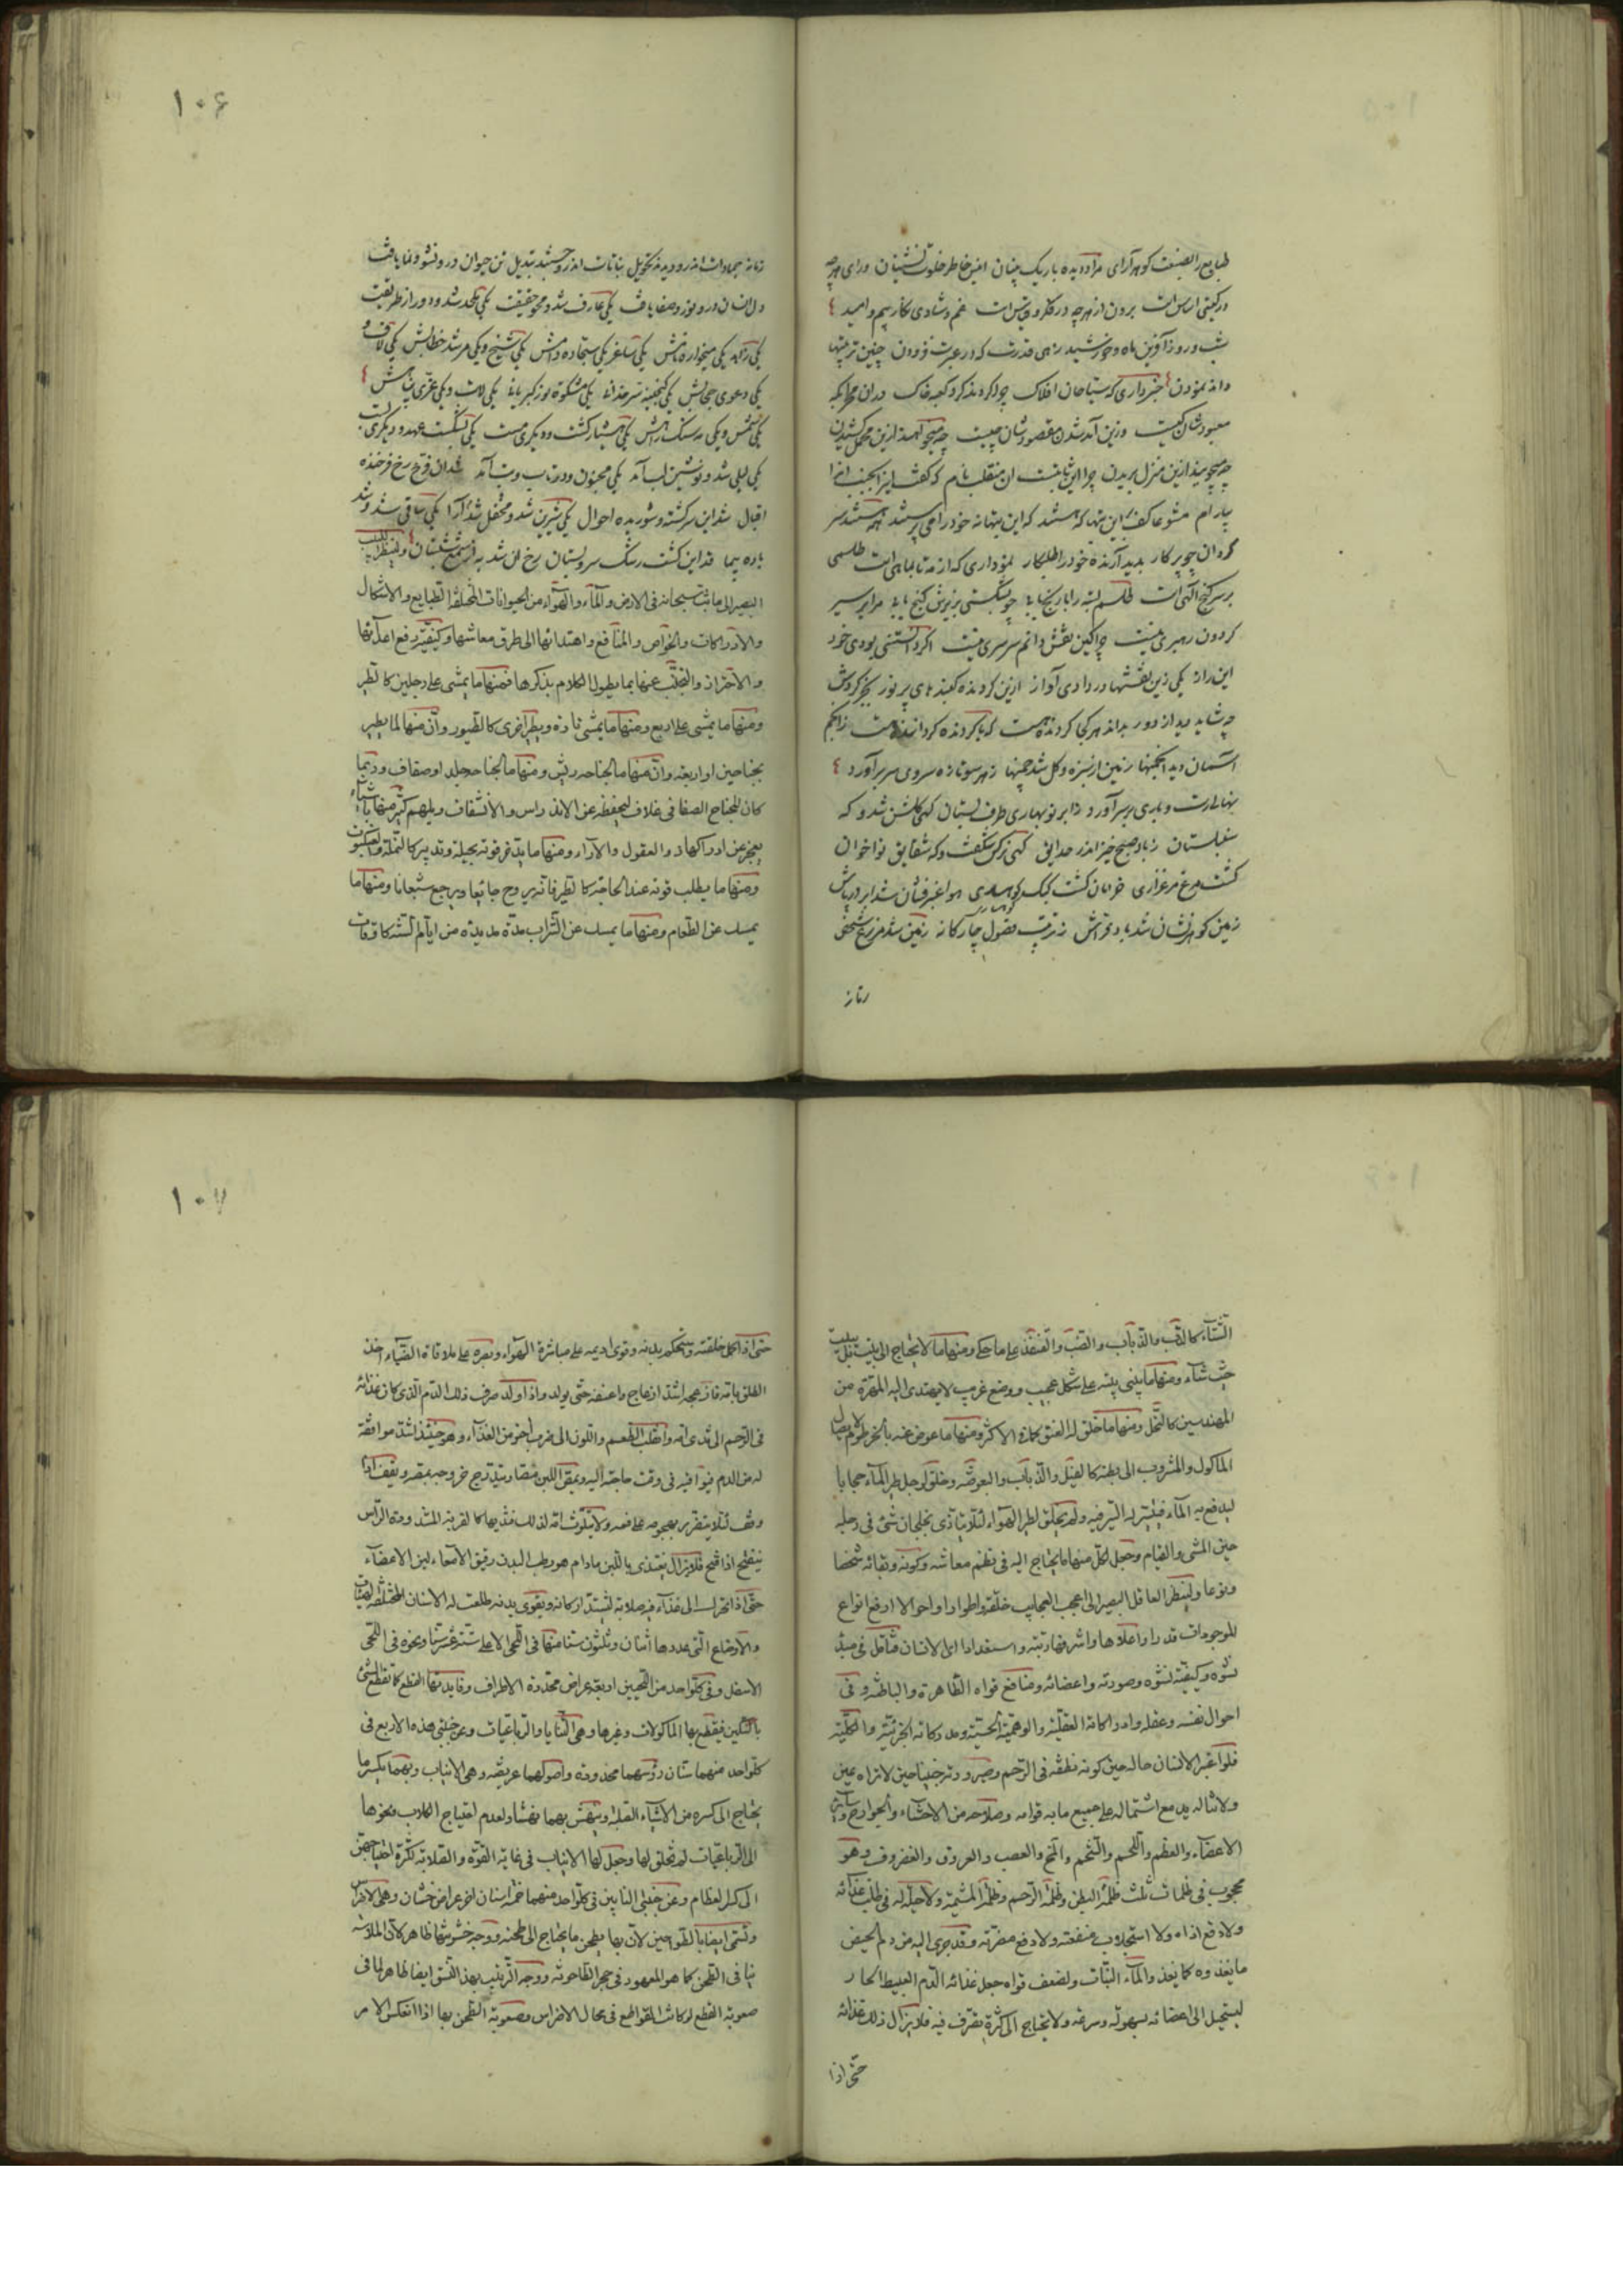 طبایع را صنعت گوهر آرای مراد دیده باریک بینان انیس خاطر خلوت نشینان ورای هرچه
در گیتی اساس است برون از هرچه در فکر و قیاس است غم و شادی نگار و بیم و امید
شب و روز آفرین ماه و خورشید زهی قدرت که در عبرت فزودن چنین ترتیبها
داند نمودن خبر داری که سیاحان افلاک چرا گردند گرد کعبه خاک در این محرابگه
معبودشان کیست وزین آمد شدن مقصودشان چیست چه میخواهند ازین محمل کشیدن
چه میجویند ازین منزل بریدن چرا این ثابت است آن منقلب نام که گفت این را بجنب آنرا
بیارام مشو عاکف این بتها که هستند که این بتها نه خود را می پرستند همه هستند سر
گردان چو پرگار پدید آرنده خود را طلبکار نموداری که از مه تا بماهی است طلسمی
بر سر گنج الهی است طلسم بسته را با رنج یابی چو بشکستی بزیرش گنج یابی مرا بر سیر
گردون رهبری نیست چرا کین نقش دانم سرسری نیست اگر دانستنی بودی خود
این راز یکی زین نقشها در دادی آواز ازین گردنده گنبدهای پر نور بجز گردش
چه شاید دید از دور بداند هر کجا گردنده هست که با گردنده گرداننده هست ز انجم
آسمان دید انجمنها زمین از سبزه و گل شد چمنها ز هر سو تازه سروی سر برآورد
نهالی رست و باری بر سر آورد ز ابر نوبهاری طرف بستان گهی گلشن شد و گه
سنبلستان ز باد صبح خیز اندر حدایق گهی نرگس شگفت و گه شقایق نواخوان
گشت مرغ مرغزاری خرامان گشت کبک کوهساری هوا عنبرفشان شد ابر درپاش
زمین گوهرنشان شد باد فراش ز ترتیب فصول چارگانه زمین شد مزرع
زمانه
۱۰۶
زمانه جمادات اندرو دیدند تحویل نباتات اندرو جستند تبدیل تن حیوان درو نشو و نما یافت
دل انسان درو نور و صفا یافت یکی عارف شد و محو حقیقت یکی ملحد شد و دور از طریقت
یکی زاهد یکی میخواره نامش یکی ساغر یکی سجاده دامش یکی شیخ و یکی مرشد خطابش یکی لاف و
یکی دعوی حجابش یکی گنجینه سر خدائی یکی مشکوه نور کبریائی یکی لات و یکی عزی پناهش
یکی شمس و یکی مه سنگ راهش یکی هشیار گشت و دیگری مست یکی بشکست عهد و دیگری بست
یکی لیلی شد و نوشین لب آمد یکی مجنون و در تاب و تب آمد شد آن فرخ رخ فرخنده
اقبال شد این سرگشته و شوریده احوال یکی شیرین شد و محفل شد آرا یکی ساقی شد و شد
باده پیما قد این گشت رشک سروبستان رخ آن شد به از شمع شبستان ولینظر اللبیب
البصیر الی ما بث سبحانه فی الارض والماء والهواء من الحیوانات المختلفة الطبایع والاشکال
والادراکات والخواص والمنافع واهتدائها الی طرق معاشها وکیفیة دفع اعدائها
والاحتراز والتجنب عنها بما یطول الکلام بذکرها فمنها ما یمشی علی رجلین کالطیر
ومنها ما یمشی علی اربع ومنها ما یمشی تارة ویطیر اخری کالطیور وان منها لما یطیر
بجناحین او اربعة وان منها ما لجناحه ریش ومنها ما لجناحه جلد او صفاق وربما
کان للجناح الصفاقی غلاف لیحفظه عن الاندراس والانشقاق ویلهم کثیر منها باشیاء
یعجز عن ادراکها ذوو العقول والآراء ومنها ما یدخر قوته بحیلة وتدبیر کالنملة والعنکبوت
ومنها ما یطلب قوته عند الحاجة کالطیر فانه یروح جائعا ویرجع شبعانا ومنها ما
یمسک عن الطعام ومنها ما یمسک عن الشراب مدة مدیدة من ایام السنة کاوقات
الشتاء کالدب والذباب والضب والقنفذ علی ما حکی ومنها ما لا یحتاج الی بیت بل یبیت
حیث شاء ومنها ما یبنی بیته علی شکل عجیب ووضع غریب لا یهتدی الیه المهرة من
المهندسین کالنحل ومنها ما خلق له العنق کما فی الاکثر ومنها ما عوض عنه بالخرطوم لایصال
الماکول والمشروب الی بطنه کالفیل والذباب والبعوضة وخلق لرجل طیر الماء حجابا
لیدفع به الماء فیتیسر له السیر فیه ولم یخلق لطیر الهواء لئلا یتاذی بخلجان شئ فی رجله
حین المشی والقیام وجعل لکل منها ما یحتاج الیه فی نظم معاشه وکونه وبقائه شخصا
ونوعا ولینظر العاقل البصیر الی اعجب العجایب خلقة واطوارا واحوالا ارفع انواع
الموجودات قدرا واعلاها واشرفها رتبة واستعدادا اعنی الانسان فتامل فی مبدأ
نشوه وکیفیة نشوه وصورته واعضائه ومنافع قواه الظاهرة والباطنة وفی
احوال نفسه وعقله وادراکاته العقلیة والوهمیة الحسیة ومدرکاته الجزئیة والکلیة
فلو اعتبر الانسان حاله حین کونه نطفة فی الرحم وصیرورته جنینا حین لا تراه عین
ولا تناله ید مع اشتماله علی جمیع ما به قوامه وصلاحه من الاحشاء والجوارح وسائر
الاعضاء والعظم واللحم والشحم والمخ والعصب والعروق والغضروف وهو
محجوب فی ظلمات ثلث ظلمة البطن وظلمة الرحم وظلمة المشیمة ولا حیلة له فی طلب غذائه
ولا دفع اذاه ولا استجلاب منفعته ولا دفع مضرته وقد جری الیه من دم الحیض
ما یغذوه کما یغذو الماء النبات ولضعف قواه جعل غذائه الدم العبیط الحار
لیستحیل الی اعضائه بسهولة وسرعة ولا یحتاج الی کثرة تصرف فیه فلا یزال ذلک غذائه
حتی اذا
۱۰۷
حتی اذا کمل خلقته واستحکم بدنه وقوی ادیمه علی مباشرة الهواء وبصره علی ملاقاة الضیاء اخذ
الطلق بامه فازعجه اشد ازعاج واعنفه حتی یولد واذا ولد صرف ذلک الدم الذی کان غذائه
فی الرحم الی ثدی امه وانقلب الطعم واللون الی ضرب آخر من الغذاء وهو حینئذ اشد موافقة
له من الدم فیوافیه فی وقت حاجته الیه ویمص اللبن
وقف لئلا یتضرر بهجومه علی فمه ولا یتلوث
ینفتح اذا فتح فلا یزال یغتذی باللبن ما دام هو رطب البدن رقیق الامعاء لین الاعضاء
حتی اذا تحرک الی غذاء فیه صلابة لیشتد ارکانه ویقوی بدنه طلعت له الاسنان المختلفة الهیئات
والاوضاع التی عددها اثنان وثلثون ستة منها فی اللحی الاعلی ستة عشر سنا ونحوه فی اللحی
الاسفل وفی کل واحد من اللحیین اربعة عراض محددة الاطراف وفایدتها القطع کما تقطع الشئ
بالسکین فیقطع بها الماکولات وغیرها وهی الثنایا والرباعیات وعن جنبتی هذه الاربع فی
کل واحد منهما سنان رؤسهما محدودة واصولهما عریضة وهی الانیاب وبهما یکسر ما
یحتاج الی کسره من الاشیاء الصلبة وینهش بهما نهشا ولعدم احتیاج الکلاب ونحوها
الی الرباعیات لم تخلق لها وجعل لها الانیاب فی غایة القوة والصلابة لکثرة احتیاجهن
الی کسر العظام وعن جنبتی النابین فی کل واحد منهما خمسة اسنان اخر عراض خشان وهی الاضراس
وتسمی ایضا بالطواحین لان بها یطحن ما یحتاج الی طحنه ووجه خشونتها ظاهر کان الملاسة
تنافی الطحن کما هو المعهود فی حجر الطاحونة ووجه الترتیب بهذا النسق ایضا ظاهر لما فی
صعوبة القطع لو کانت القواطع فی محال الاضراس وصعوبة الطحن بها اذا انعکس الامر